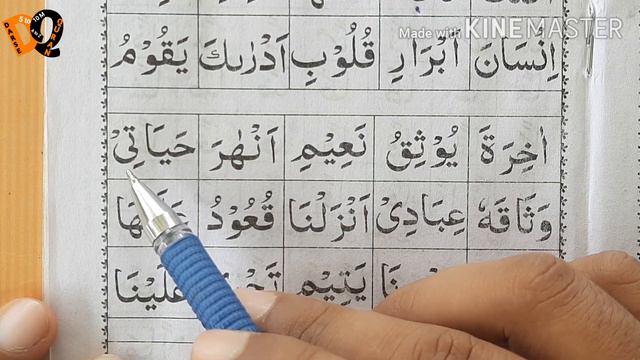 Made with KINEMASTER
اِنْسَانَ اَبْرَارِ قُلُوْبِ اَدْرٰىكَ يَقُوْمُ
اٰخِرَةَ يُوْثِقُ نَعِيْمِ اَنْهٰرَ حَيَاتِىْ
وَثَاقَهٗ عِبَادِىْ اَنْزَلْنَا قُعُوْدٌ
يَتِيْمِ عَلَيْنَا